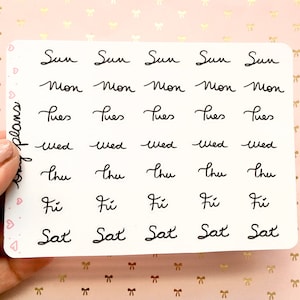 Sun Sun Sun Sun Sun
Mon Mon Mon Mon Mon
Tues Tues Tues Tues Tues
Wed Wed Wed Wed Wed
Thu Thu Thu Thu Thu
Fri Fri Fri Fri Fri
Sat Sat Sat Sat Sat
plans